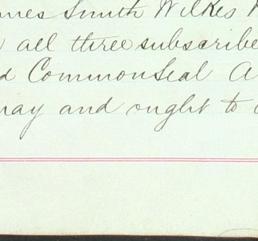 ames Smith Wilkes
all three subscribe
d Common Seal A
may and ought to